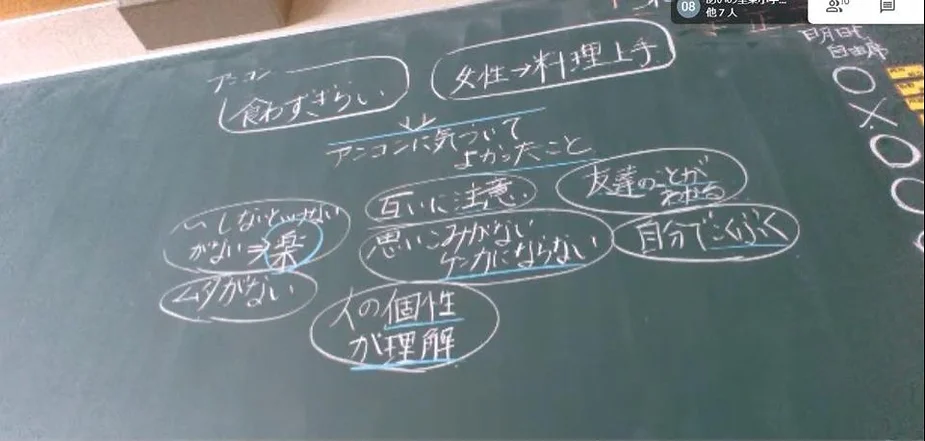 08
他7人
明日も
自由席
アンコン
食わずぎらい
女性→料理上手
アンコンに気づいて
よかったこと
〜しないといけない
がない⇒楽
互いに注意
友達のことが
わかる
思いこみがない
ケンカにならない
自分で
ムダがない
人の個性
が理解